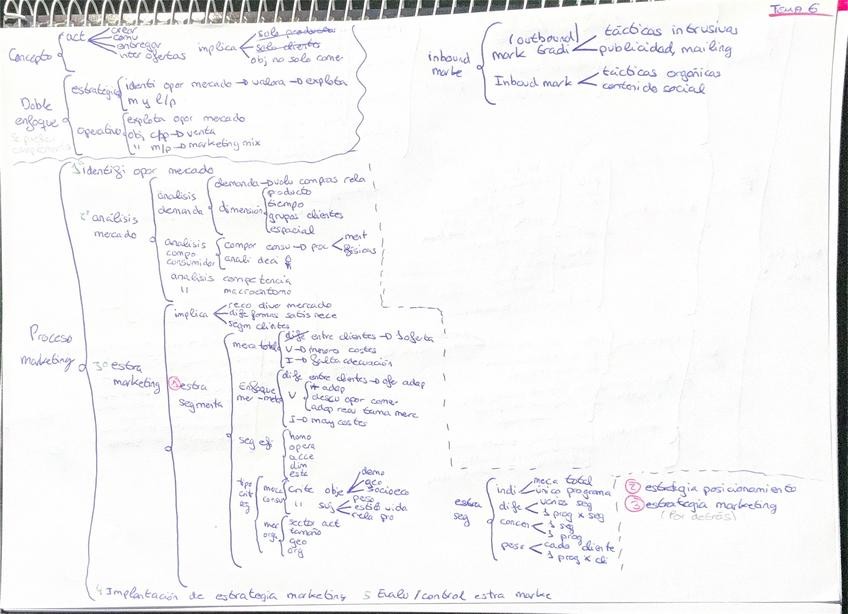 Tema 6
Concepto
act
crear
comu
entregar
inter ofertas
implica
solo productos
solo clientes
obj no solo comer
Doble enfoque
estrategia
identi opor mercado → valora → explota
m y l/p
operativo
explota opor mercado
obj c/p → venta
" m/p → marketing mix
inbound marke
(outbound)
mark tradi
tácticas intrusivas
publicidad, mailing
Inbound mark
tácticas orgánicas
contenido social
Proceso marketing
1º identifi opor mercado
2º análisis mercado
análisis demanda
demanda → volu compras rela
dimensión
producto
tiempo
grupos clientes
espacial
análisis compo. consumidor
compor consu → proc
ment
físicas
anali deci
análisis competencia
" macroentorno
3º estra marketing
① estra segmenta
implica
reco dive mercado
dife formas satis nece
segm clientes
merca total
dife entre clientes → 1 oferta
V → menores costes
I → falta adecuación
Enfoque
dife entre clientes → ofe adap
V
+ adap
descu opor comer
adap recu tama merc
I → may costes
seg efi
homo
opera
acce
dim
esta
tipo crit seg
merca consu
crite obje
demo
geo
socioeco
" subj
pers
estilo vida
rela pro
mer orgs
sector act
tamaño
geo
org
estra seg
indi
merca total
único programa
dife
varios seg
1 prog x seg
concen
1 seg
1 prog
perso
cada cliente
1 prog x cli
② estrategia posicionamiento
③ estrategia marketing
(Por detrás)
4 Implantación de estrategia marketing 5 Evalu/control estra marke